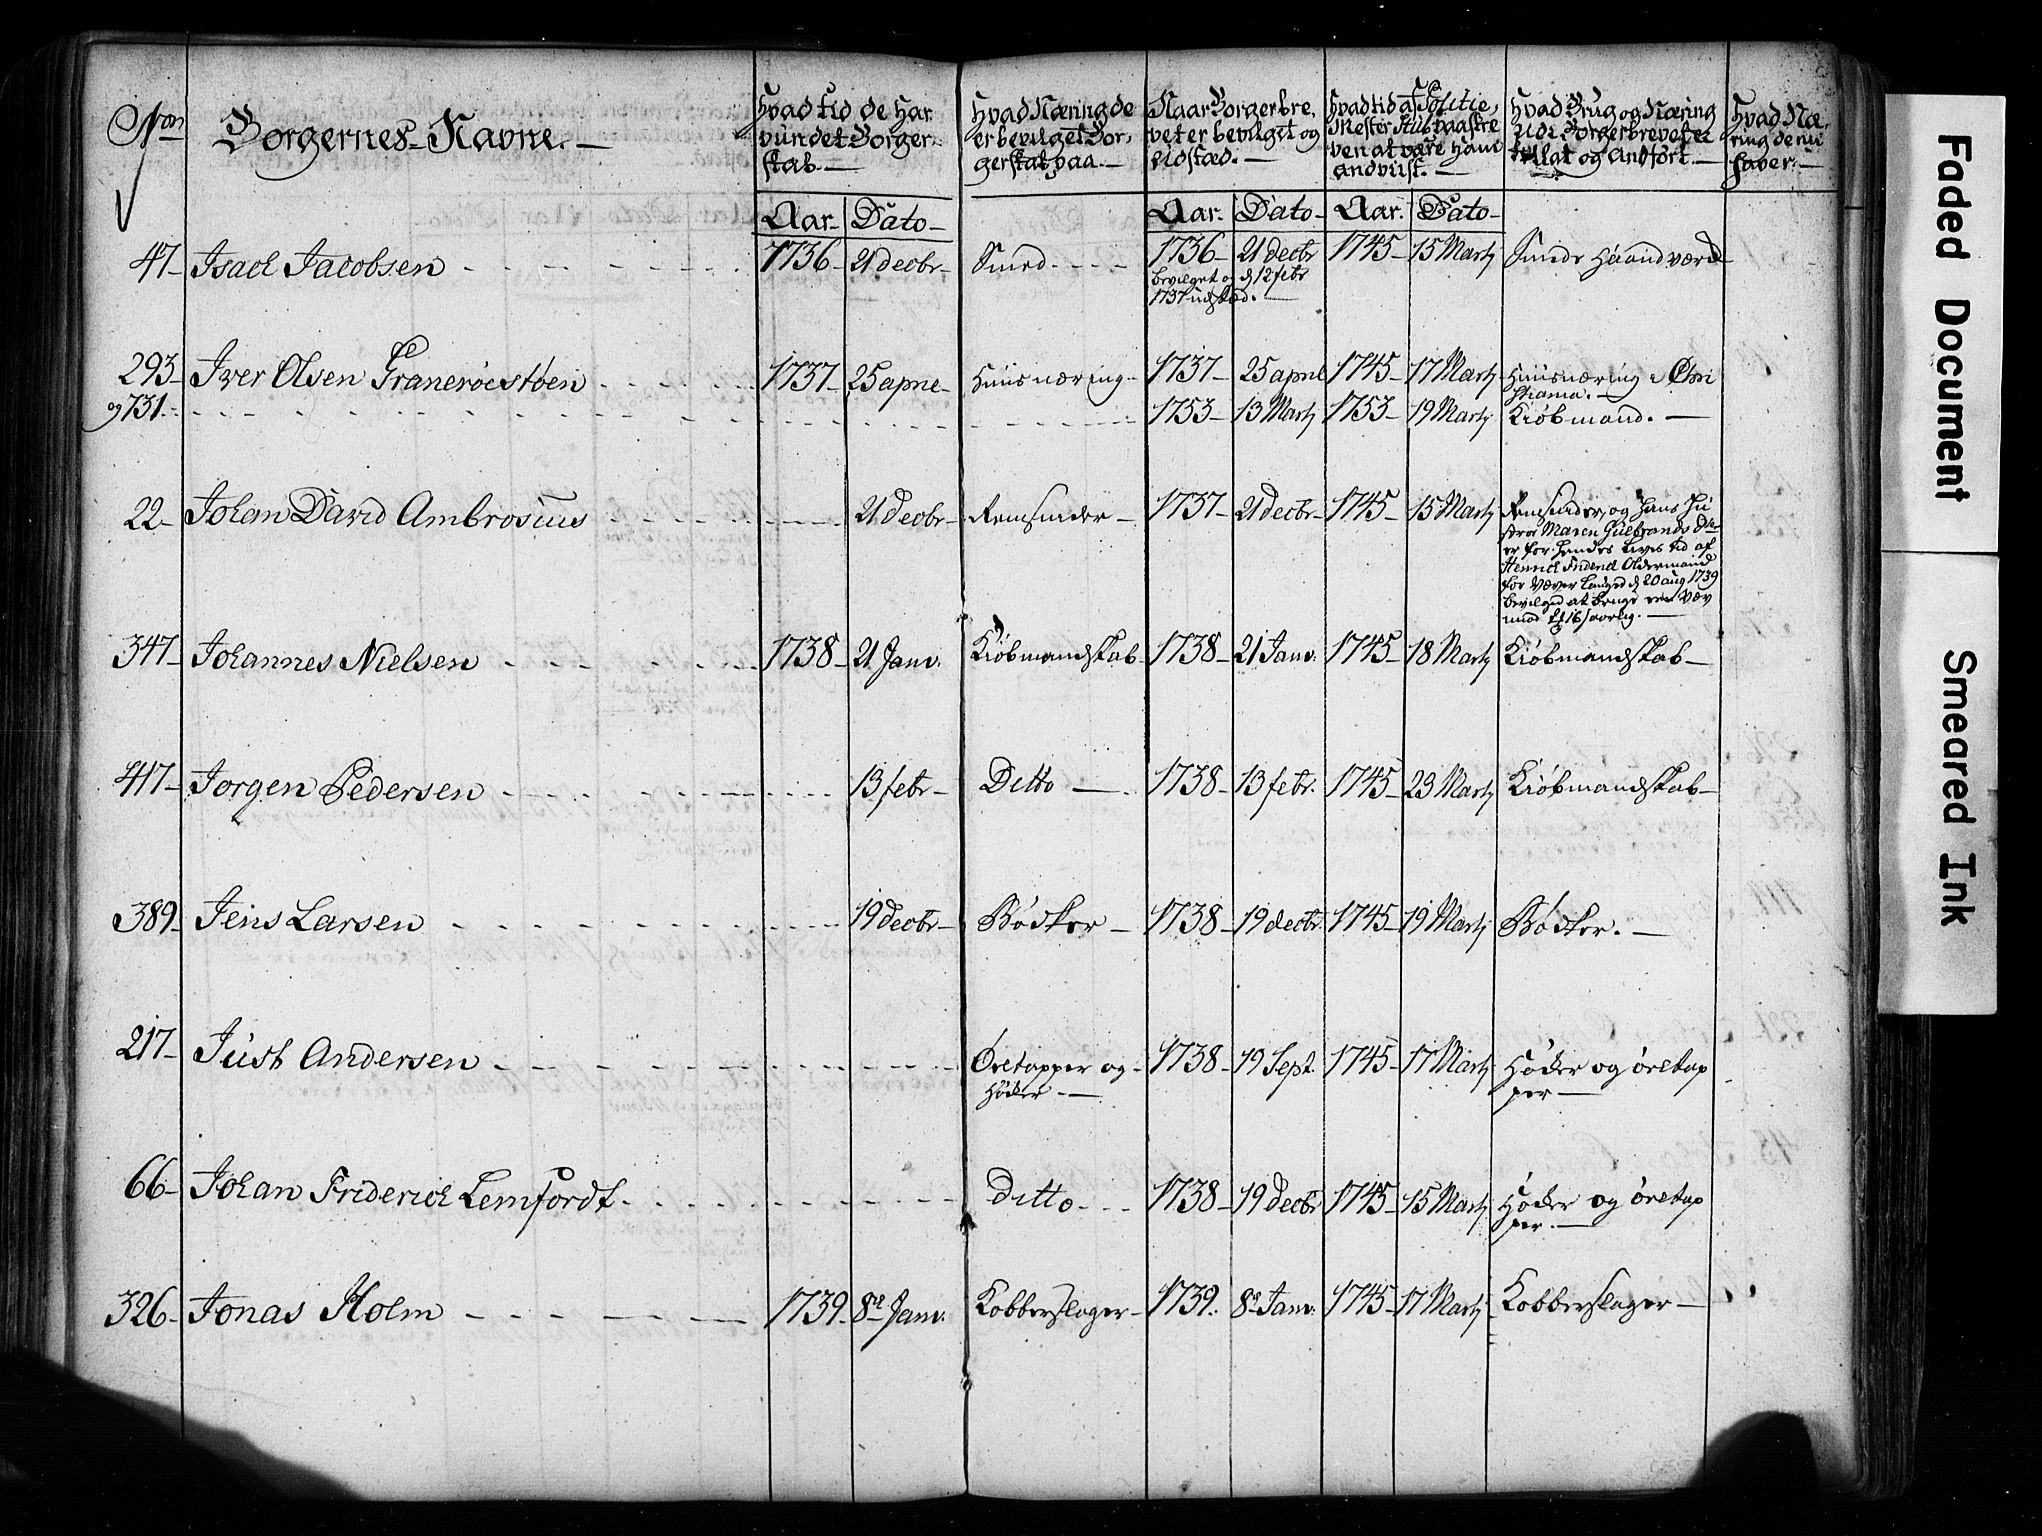 Non
Borgernes Navne. —
Hvad tid de har
vundet Borger-
skab. —
Aar. Dato —
Hvad Næring de
er bevilget Bor-
gerskab paa. —
Naar Borgerbre,
vet er bevilget og
udstæd. —
Aar. Dato —
Hvad tid af Politie,
Mester Stub paaskre
ven at være ham
andviist. —
Aar. Dato —
Hvad Brug og Næring
udi Borgerbrevet er
tillat og Anført. —
Hvad Næ,
ring de nu
haver. —
47 — Isach Jacobsen - - - 1736 — 21 decbr — Smed - - - 1736 — 21 decbr 1745 — 15 Martj Smede Haandværd
bevilget og d 12 febr
1737 udstæd. —
293 — Iver Olsen Graneröestöen - - - 1737 — 25 apr — Huusnæring — 1737 — 25 apr 1745 — 17 Martj Huusnæring i Chri
stiania. —
og 731. - - - 1753 — 13 Martj 1753 — 19 Martj Kiöbmand. —
22 — Johan David Ambrosius - - - 21 decbr — Remsnider — 1737 — 21 decbr — 1745 — 15 Martj Remsnider, og hans Hu
stroe Maren Gulbrands
er for hendes Lives tid af
Henrich Friderich Oldermand
for Væver Lauged d 20 aug 1739
bevilged at bruge een Væv
mod 16 s aarlig. —
347 — Johannes Nielsen - - - 1738 — 21 Janv. Kiöbmandskab — 1738 — 21 Janv. 1745 — 18 Martj Kiöbmandskab —
417 — Jorgen Pedersen - - - 13 febr — Ditto — 1738 — 13 febr. 1745 — 23 Martj Kiöbmandskab —
389 — Jens Larsen - - - 19 decbr — Bödker — 1738 — 19 decbr. 1745 — 19 Martj Bödker. —
217 — Just Andersen - - - Öletapper og — 1738 — 19 Sept. 1745 — 17 Martj Höker og öletap
Höker. — per —
66 — Johan Friderich Lemfordt. - - - Ditto - - - 1738 — 19 decbr 1745 — 15 Martj Höker og öletap
per. —
326 — Jonas Holm - - - 1739 — 8de Janv. Kobberslager — 1739. 8de Janv. 1745 — 17 Martj Kobberslager —
Faded Document
Smeared Ink